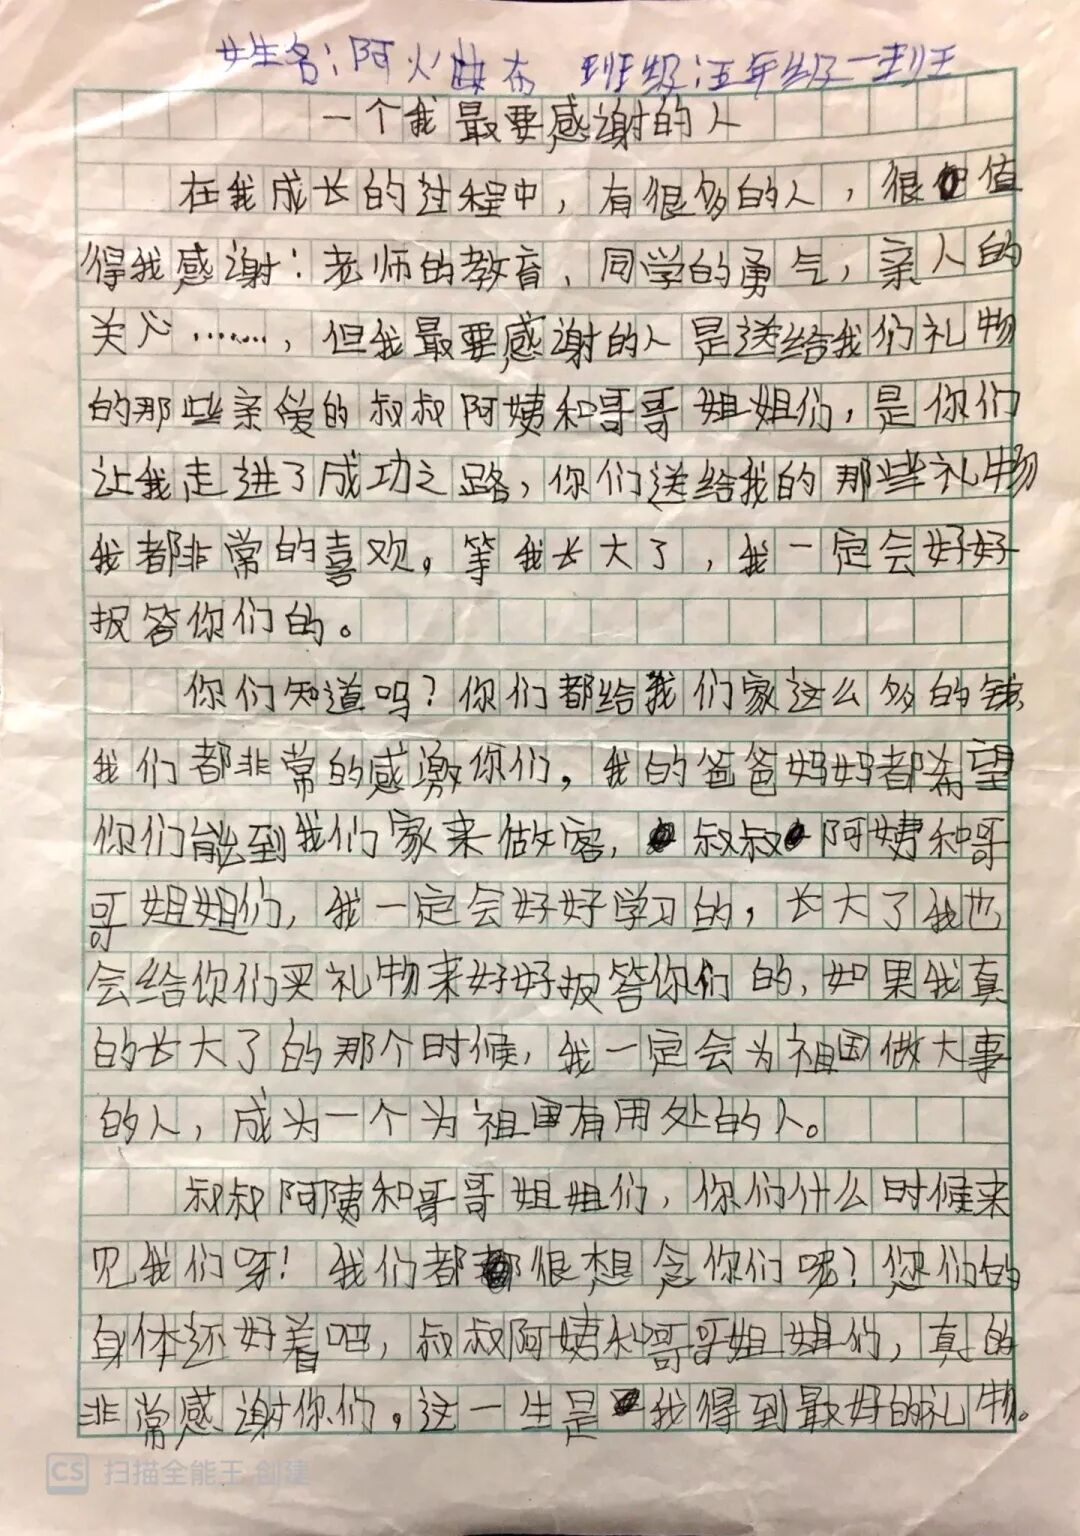 姓名：阿火布 班级：五年级一班
一个我最要感谢的人
在我成长的过程中，有很多的人，很值
得我感谢：老师的教育、同学的勇气，亲人的
关心……，但我最要感谢的人是送给我们礼物
的那些亲爱的叔叔阿姨和哥哥姐姐们，是你们
让我走进了成功之路，你们送给我的那些礼物
我都非常的喜欢。等我长大了，我一定会好好
报答你们的。
你们知道吗？你们都给我们家这么多的钱，
我们都非常的感激你们，我的爸爸妈妈都希望
你们能到我们家来做客，叔叔阿姨和哥
哥姐姐们，我一定会好好学习的，长大了我也
会给你们买礼物来好好报答你们的，如果我真
的长大了的那个时候，我一定会为祖国做大事
的人，成为一个为祖国有用处的人。
叔叔阿姨和哥哥姐姐们，你们什么时候来
见我们呀！我们都很想念你们呢？您们的
身体还好着吧，叔叔阿姨和哥哥姐姐们，真的
非常感谢你们。这一生是我得到最好的礼物。
CS 扫描全能王 创建